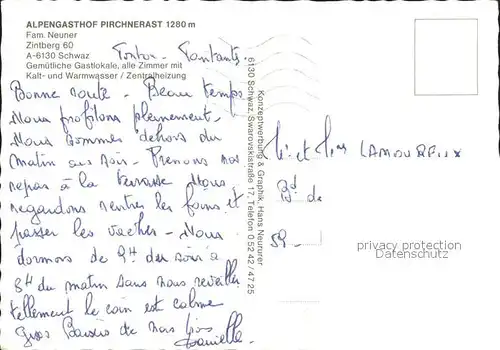 ALPENGASTHOF PIRCHNERAST 1280 m
Fam. Neuner
Zintberg 60
A-6130 Schwaz
Gemütliche Gastlokale, alle Zimmer mit
Kalt- und Warmwasser / Zentralheizung
Bonne route - Beau temps
Nous profitons pleinement.
Nous sommes dehors du
matin au soir - Prenons nos
repas à la terrasse. Nous
regardons rentrer les foins et
passer les vaches - Nous
dormons de 9H du soir à
8H du matin sans nous réveiller
tellement le coin est calme
Gros Baisés de nous
Danielle.
Konzeptwerbung & Graphik, Hans Neururer
6130 Schwaz, Swarovskistraße 17, Telefon 0 52 42 / 47 25
Mr et Mme LAMOUREUX
Bd de
59 -
privacy protection
Datenschutz